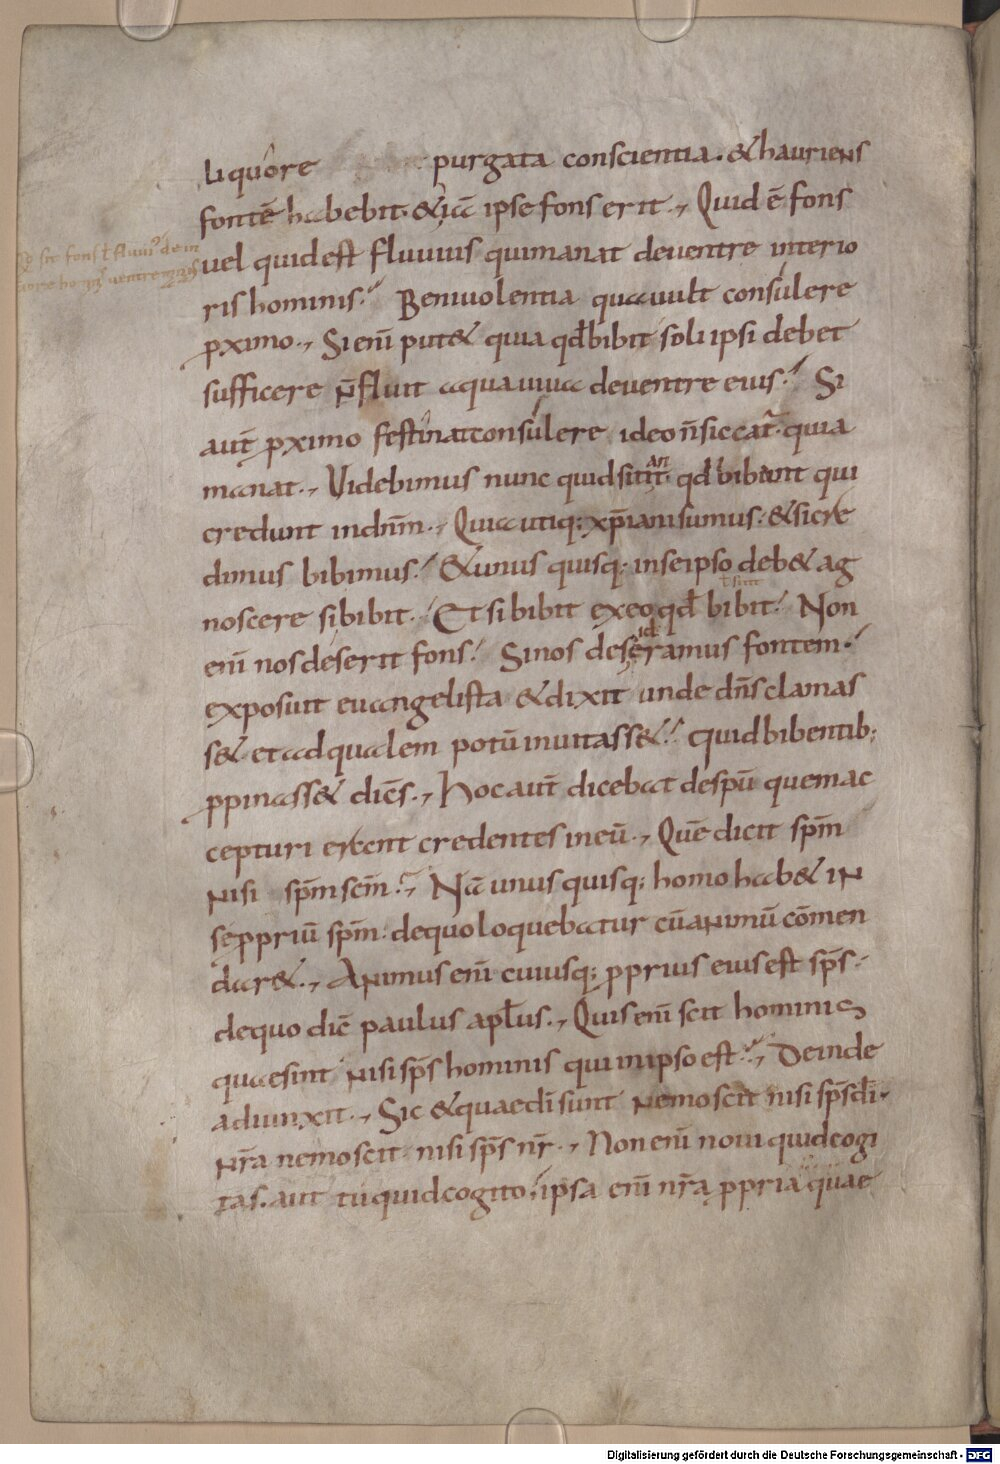 liquore purgata conscientia. & hauriens
fontē habebit. & iā ipse fons erit., Quid ē fons
uel quid est fluuius qui manat de uentre interio
ris hominis. Beniuolentia qua uult consulere
pximo., Si enī put& quia qđ bibit soli ipsi debet
sufficere n̄ fluit aqua uiua de uentre eius. Si
aut̄ pximo festinat consulere ideo n̄ siccat̄. quia
manat., Uidebimus nunc quid sit qđ bibunt qui
credunt in dn̄m., Quia utiq; xp̄iani sumus. & si cre
dimus bibimus. & unus quisq; in se ipso deb& ag
noscere si bibit. Et si bibit ex eo qđ bibit. Non
enī nos deserit fons. Si nos deseramus fontem.
exposuit euangelista & dixit unde dn̄s clamas
s& et ad qualem potū inuitass& quid bibentib;
ppinass& dic̄s., Hoc aut̄ dicebat de sp̄u quem ac
cepturi erant credentes in eū., Quē dicit sp̄m
nisi sp̄m sc̄m., Nā unus quisq; homo hab& in
se ppriū sp̄m. de quo loquebatur cū animū cōmen
dar&., Animus enī cuiusq; pprius eius est sp̄s.
de quo dic̄ paulus apl̄us., Quis enī scit hominis
quae sint nisi sp̄s hominis qui in ipso est., Deinde
adiunxit., Sic & quae dī sunt nemo scit nisi sp̄s dī.
nr̄a nemo scit nisi sp̄s nr̄., Non enī noui quid cogi
tas. aut tu quid cogito. ipsa enī nr̄a ppria quae
Digitalisierung gefördert durch die Deutsche Forschungsgemeinschaft - DFG